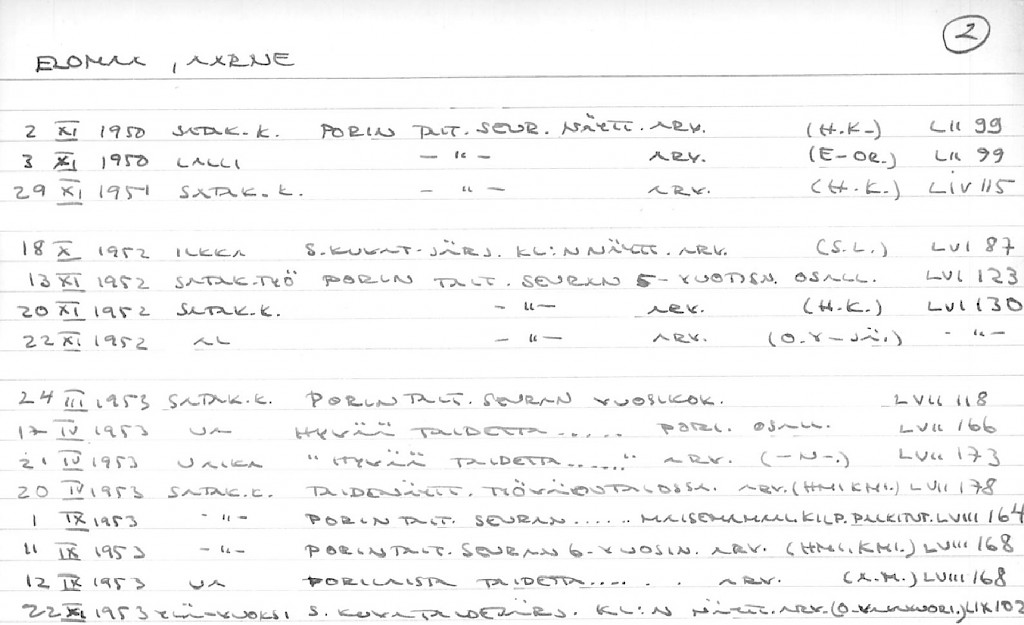 2
ELOMAA, AARNE
2 XI 1950 SATAK.K. PORIN TAIT.SEUR. NÄYTT. ARV. (H.K-) LII 99
3 XI 1950 LALLI — " — ARV. (E-OR.) LII 99
29 XI 1951 SATAK.K. — " — ARV. (H.K.) LIV 115
18 X 1952 ILKKA S.KUVAT-JÄRJ. KL:N NÄYTT. ARV. (S.L.) LVI 87
13 XI 1952 SATAK.TYÖ PORIN TAIT. SEURAN 5-VUOTISN. OSALL. LVI 123
20 XI 1952 SATAK.K. — " — ARV. (H.K.) LVI 130
22 XI 1952 AL — " — ARV. (O.V-JÄ.) — " —
24 III 1953 SATAK.K. PORIN TAIT. SEURAN VUOSIKOK. LVII 118
17 IV 1953 UA HYVÄÄ TAIDETTA ..... PORI. OSALL. LVII 166
21 IV 1953 UAIKA "HYVÄÄ TAIDETTA ......" ARV. (-N-.) LVII 173
20 IV 1953 SATAK.K. TAIDENÄYTT. TYÖVÄENTALOSSA. ARV. (HMI KMI.) LVII 178
1 IX 1953 — " — PORIN TAIT. SEURAN ...... MAISEMAMAAL.KILP. PALKITUT. LVIII 164
11 IX 1953 — " — PORIN TAIT. SEURAN 6-VUOSIN. ARV. (HMI.KMI.) LVIII 168
12 IX 1953 UA PORILAISTA TAIDETTA ...... ARV. (A.M.) LVIII 168
22 XI 1953 YLÄ-VUOKSI S. KUVATAIDEJÄRJ. KL:N NÄYTT. ARV. LIX 102